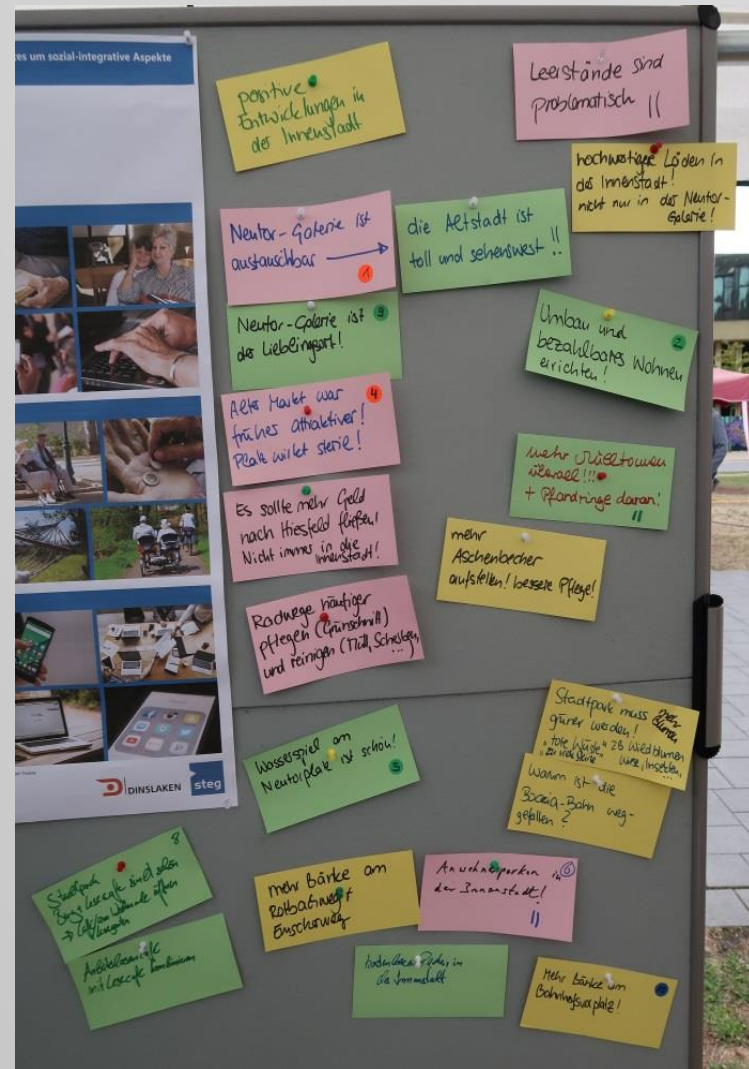 tes um sozial-integrative Aspekte
positive
Entwicklungen in
der Innenstadt
Leerstände sind
problematisch ||
hochwertige Läden in
der Innenstadt!
nicht nur in der Neutor-
Galerie!
Neutor-Galerie ist
austauschbar →
1
die Altstadt ist
toll und sehenswert !!
Neutor-Galerie ist
der Lieblingsort!
9
Umbau und
bezahlbares Wohnen
errichten!
2
Alter Markt war
früher attraktiver!
Platz wirkt steril!
4
mehr Mülltonnen
überall!!!
+ Pfandringe daran!
||
Es sollte mehr Geld
nach Hiesfeld fließen!
Nicht immer in die
Innenstadt!
mehr
Aschenbecher
aufstellen! bessere Pflege!
Radwege häufiger
pflegen (Grünschnitt)
und reinigen (Müll, Scherben,
...
Wasserspiel am
Neutorplatz ist schön!
5
Stadtpark muss mehr
grüner werden! Blumen
"tote Wüste" zB Wildblumen
Insekten,
Warum ist die
Boccia-Bahn weg-
gefallen?
DINSLAKEN
steg
8
Stadtpark
Burg + Lesecafe sind schön
→ Cafe am öfters
mehr Bänke am
Rotbachweg +
Emscherweg
Anwohnerparken in
der Innenstadt!
||
6
mit Lesecafe kombinieren
in
der Innenstadt
Mehr Bänke am
Bahnhofsvorplatz!